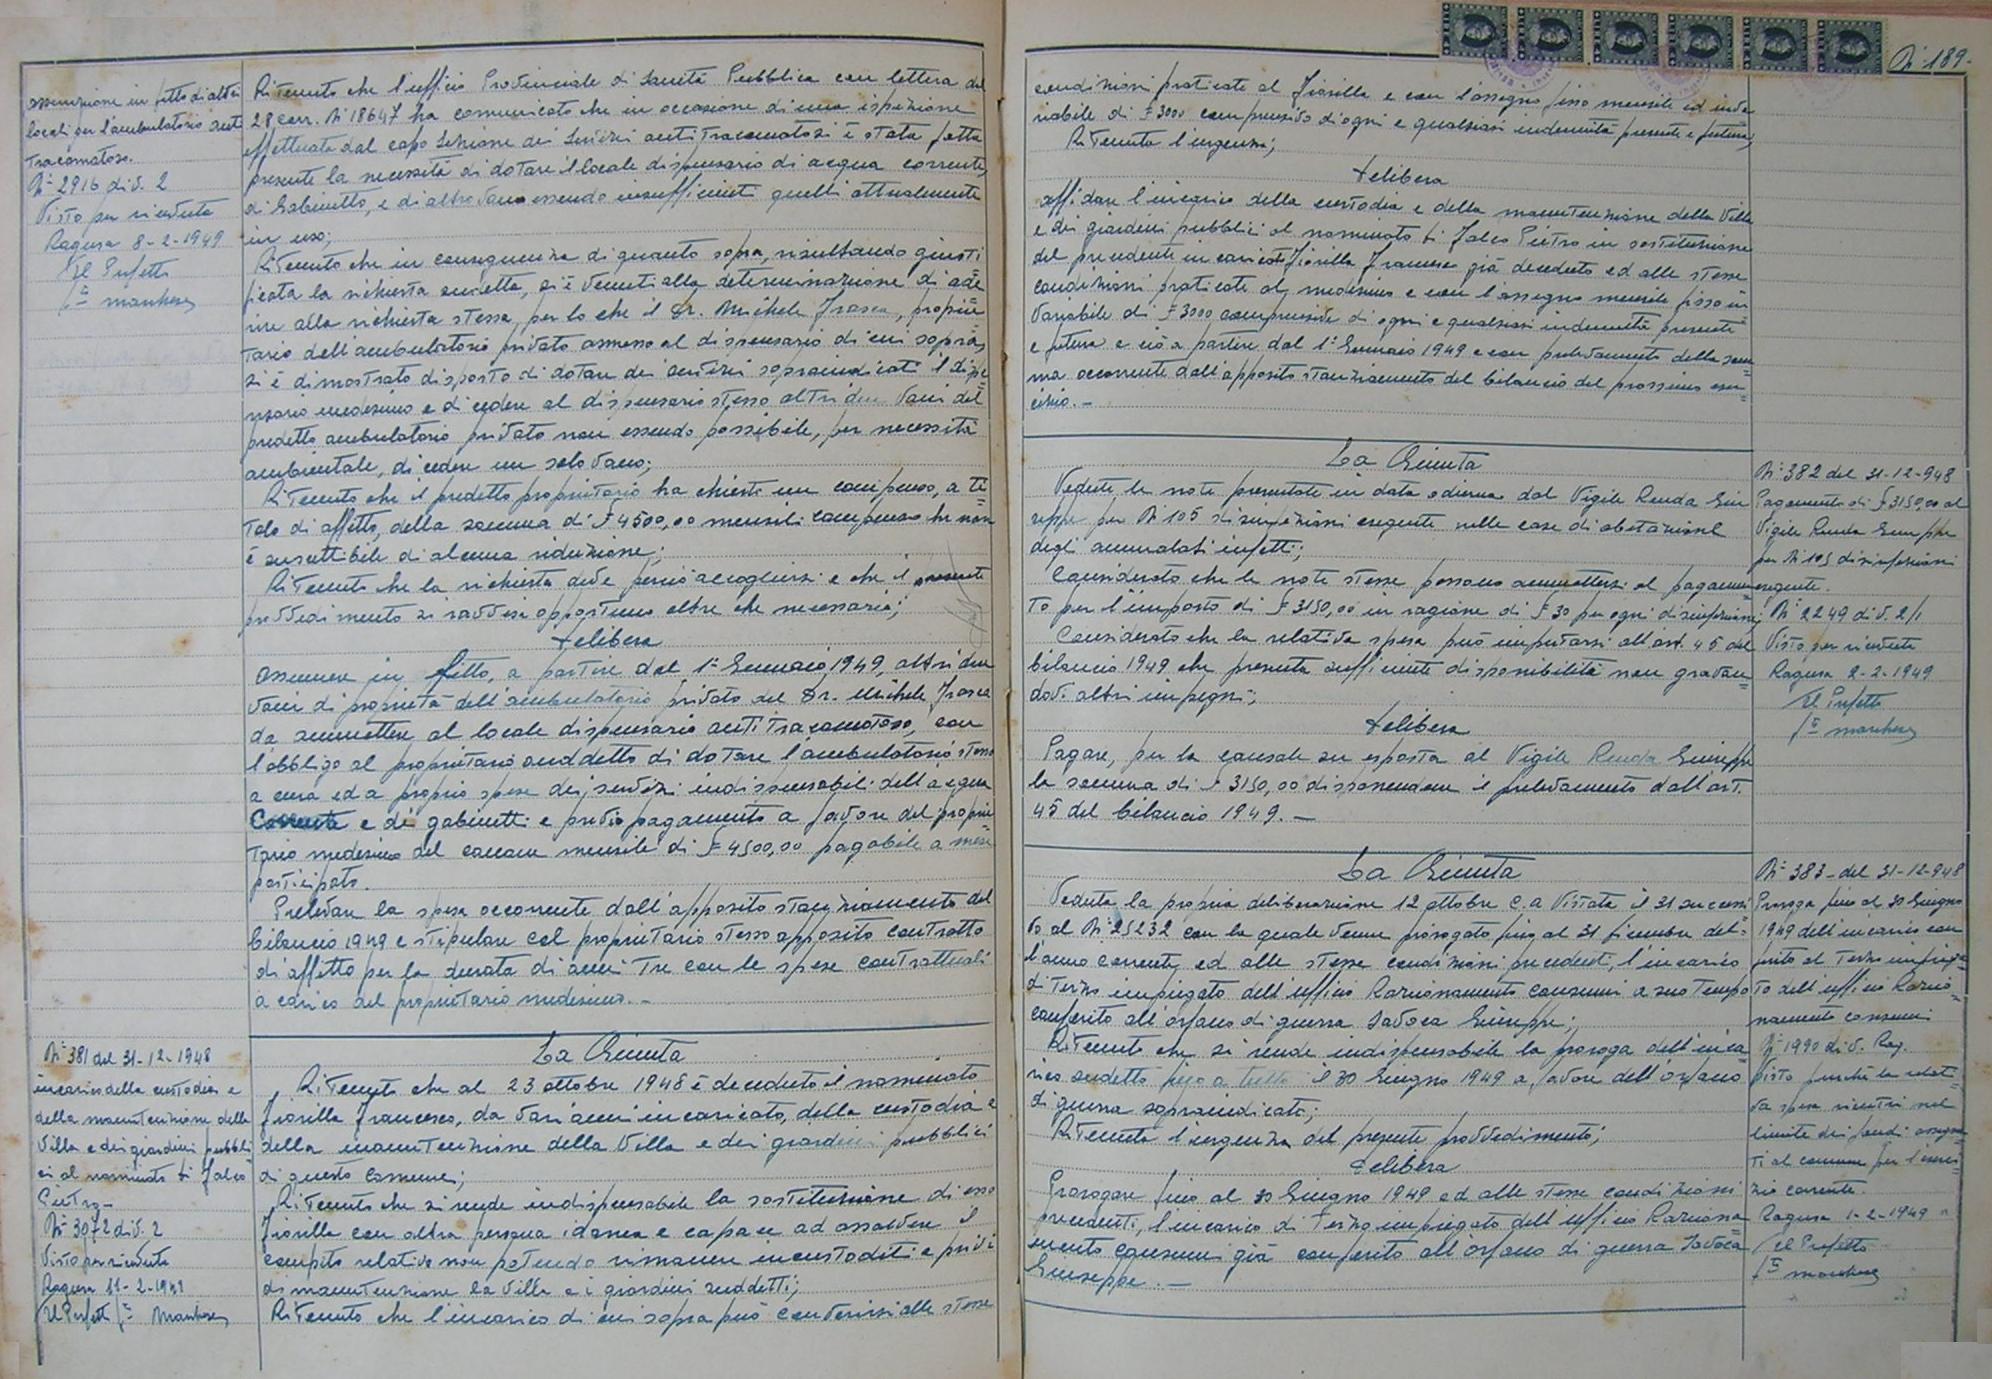 assunzione in fitto di altri
locali per l'ambulatorio anti
tracomatoso.
N° 2916 div. 2
Visto per ricevuta
Ragusa 8-2-1949
Il Prefetto
Ritenuto che l'ufficio Provinciale di Sanità Pubblica con lettera del
28 corr. N° 18647 ha comunicato che in occasione di una ispezione
effettuata dal capo Sezione dei Servizi antitracomatosi è stata fatta
presente la necessità di dotare il locale dispensario di acqua corrente
di Gabinetto, e di altro vano essendo insufficienti quelli attualmente
in uso;
Ritenuto che in conseguenza di quanto sopra, risultando giusti
ficata la richiesta anzidetta, si è venuti alla determinazione di ade
rire alla richiesta stessa, per lo che il Dr. Michele Frasca, proprie
tario dell'ambulatorio privato annesso al dispensario di cui sopra,
si è dimostrato disposto di dotare dei servizi sopraindicati il dispe
nsario medesimo e di cedere al dispensario stesso altri due vani del
predetto ambulatorio privato non essendo possibile, per necessità
ambientale, di cedere un solo vano;
Ritenuto che il predetto proprietario ha chiesto un compenso, a ti
tolo di affitto, della somma di £ 4500,00 mensili compenso che non
è suscettibile di alcuna riduzione;
Ritenuto che la richiesta deve perciò accogliersi e che il presente
provvedimento si ravvisa opportuno oltre che necessario;
Delibera
Assumere in fitto, a partire dal 1° Gennaio 1949, altri due
vani di proprietà dell'ambulatorio privato del Dr. Michele Frasca
da annettere al locale dispensario antitracomatoso, con
l'obbligo al proprietario suddetto di dotare l'ambulatorio stesso
a cura ed a proprie spese dei servizi indispensabili dell'acqua
corrente e dei gabinetti e previo pagamento a favore del proprie
tario medesimo del canone mensile di £ 4500,00 pagabile a mese
posticipato.
Prelevare la spesa occorrente dall'apposito stanziamento del
bilancio 1949 e stipulare col proprietario stesso apposito contratto
di affitto per la durata di anni tre con le spese contrattuali
a carico del proprietario medesimo.-
N° 381 del 31-12-1948
incarico della custodia e
della manutenzione della
Villa e dei giardini pubbli
ci al nominato Di Falco
Pietro-
N° 3072 div. 2
Visto per ricevuta
Ragusa 11-2-1949
Il Prefetto
La Giunta
Ritenuto che al 23 ottobre 1948 è deceduto il nominato
Fiorilla Francesco, da vari anni incaricato, della custodia e
della manutenzione della Villa e dei giardini pubblici
di questo Comune;
Ritenuto che si rende indispensabile la sostituzione di esso
Fiorilla con altra persona idonea e capace ad assolvere il
compito relativo non potendo rimanere incustoditi e privi
di manutenzione la Villa e i giardini suddetti;
Ritenuto che l'incarico di cui sopra può conferirsi alle stesse
N° 189-
condizioni praticate al Fiorilla e con l'assegno fisso mensile ed inva
riabile di £ 3000 comprensivo d'ogni e qualsiasi indennità presente e futura;
Ritenuta l'urgenza;
Delibera
affidare l'incarico della custodia e della manutenzione della Villa
e dei giardini pubblici al nominato Di Falco Pietro in sostituzione
del precedente incaricato Fiorilla Francesco già deceduto ed alle stesse
condizioni praticate al medesimo e con l'assegno mensile fisso in
variabile di £ 3000 comprensivo di ogni e qualsiasi indennità presente
e futura e ciò a partire dal 1° Gennaio 1949 e con prelevamento della som
ma occorrente dall'apposito stanziamento del bilancio del prossimo eser
cizio.-
La Giunta
Vedute le note presentate in data odierna dal Vigile Renda Giu
seppe per N° 105 disinfezioni eseguite nelle case di abitazione
degli ammalati infetti;
Considerato che le note stesse possono ammettersi al pagamen
to per l'importo di £ 3150,00 in ragione di £ 30 per ogni disinfezione;
Considerato che la relativa spesa può imputarsi all'art. 45 del
bilancio 1949 che presenta sufficiente disponibilità non gravan
dovi altri impegni;
Delibera
Pagare, per la causale su esposta al Vigile Renda Giuseppe
la somma di £ 3150,00 disponendone il prelevamento dall'art.
45 del bilancio 1949.-
N° 382 del 31-12-948
Pagamento di £ 3150,00 al
Vigile Renda Giuseppe
per N° 105 disinfezioni
eseguite.
N° 2249 div. 2/1
Visto per ricevuta
Ragusa 2-2-1949
Il Prefetto
La Giunta
Veduta la propria deliberazione 12 ottobre c.a vistata il 31 successi
vo al N° 25232 con la quale venne prorogato fino al 31 dicembre del-
l'anno corrente, ed alle stesse condizioni precedenti, l'incarico
di terzo impiegato dell'ufficio Razionamento consumi a suo tempo
conferito all'orfano di guerra Savoca Giuseppe;
Ritenuto che si rende indispensabile la proroga dell'inca
rico suddetto fino a tutto il 30 Giugno 1949 a favore dell'orfano
di guerra sopraindicato;
Ritenuta l'urgenza del presente provvedimento;
Delibera
Prorogare fino al 30 Giugno 1949 ed alle stesse condizioni
precedenti, l'incarico di terzo impiegato dell'ufficio Raziona
mento consumi già conferito all'orfano di guerra Savoca
Giuseppe.-
N° 383- del 31-12-948
Proroga fino al 30 Giugno
1949 dell'incarico con
ferito al terzo impiega
to dell'ufficio Razio
namento consumi
N° 1990 div. Rag.
Visto purchè la relati
va spesa rientri nel
limite dei fondi assegna
ti al comune per l'eserci
zio corrente.
Ragusa 1-2-1949
Il Prefetto